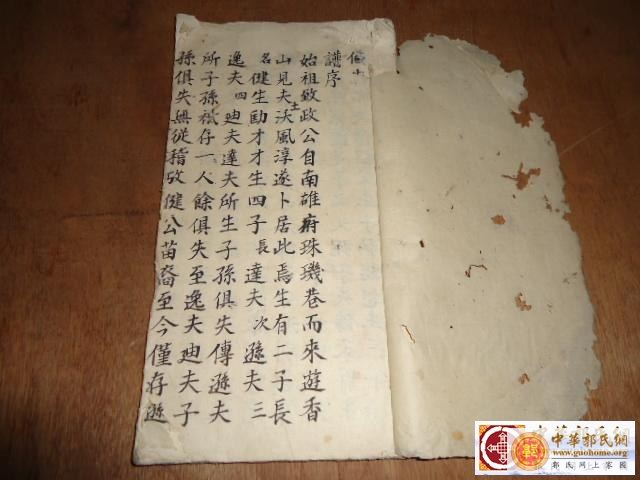 譜序
始祖致政公自南雄府珠璣巷而來遊香
山見夫土沃風淳遂卜居此焉生有二子長
名健生才才生四子長達夫次遜夫三
逸夫四迪夫達夫所生子孫俱失傳遜夫
所子孫祗存一人餘俱失至逸夫迪夫子
孫俱失無從稽攷健公苗裔至今僅存遜
中華郭氏網
www.guohome.org
郭氏網上家園